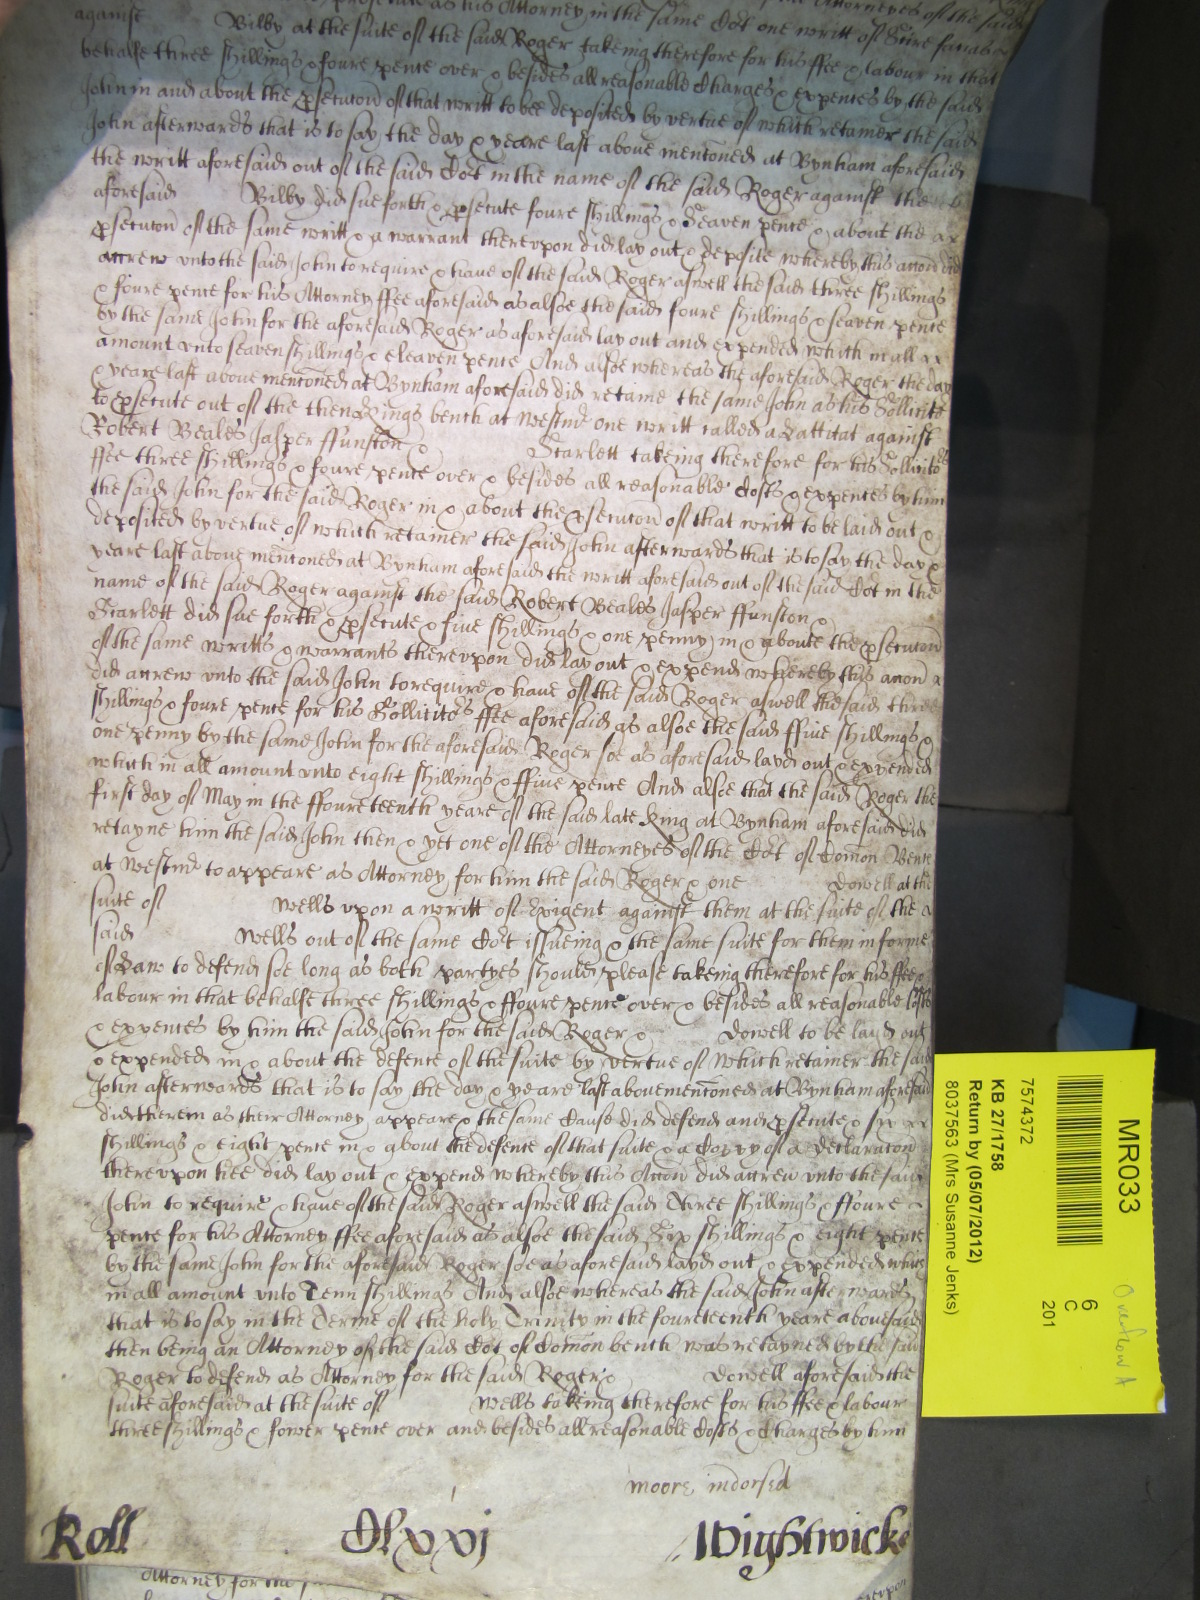 prosecute as his Attorney in the same Cot one writt of Scire facias
against Bilby at the suite of the said Roger takeing therefore for his ffee & labour in that
behalfe three shillings & foure pence over & besides all reasonable Charges & expences by the said
John in and about the psecucon of that writt to bee deposited by vertue of which retainer the said
John afterwards that is to say the day & yeare last above menconed at Bynham aforesaid
the writt aforesaid out of the said Cot in the name of the said Roger against the
aforesaid Bilby did sue forth & psecute foure shillings & Seaven pence & about the
psecucon of the same writt & a warrant therevpon did lay out & deposite whereby this accon did
accrew vnto the said John to require & haue of the said Roger aswell the said three shillings
& foure pence for his Attorney ffee aforesaid as alsoe the said foure shillings & seaven pence
by the same John for the aforesaid Roger as aforesaid lay out and expended which in all
amount vnto seaven shillings & eleaven pence And alsoe whereas the aforesaid Roger the day
& yeare last aboue menconed at Bynham aforesaid did retaine the same John as his Sollicitor
to psecute out of the then Kings bench at Westmr one writt called a Lattitat against
Robert Beales Jasper ffunston & Scarlett takeing therefore for his Sollicitors
ffee three shillings & foure pence over & besides all reasonable Costs & expences by him
the said John for the said Roger in & about the psecucon of that writt to be laid out &
deposited by vertue of which retainer the said John afterwards that is to say the day &
yeare last aboue menconed at Bynham aforesaid the writt aforesaid out of the said Cot in the
name of the said Roger against the said Robert Beales Jasper ffunston &
Scarlett did sue forth & psecute & fiue shillings & one penny in & aboute the psecucon
of the same writts & warrants therevpon did lay out & expend whereby this accon
did accrew vnto the said John to require & haue of the said Roger aswell the said three
shillings & foure pence for his Sollicitors ffee aforesaid as alsoe the said ffiue shillings &
one penny by the same John for the aforesaid Roger soe as aforesaid layd out & expended
which in all amount vnto eight shillings & ffiue pence And alsoe that the said Roger the
first day of May in the ffoureteenth yeare of the said late King at Bynham aforesaid did
retayne him the said John then & yet one of the Attorneyes of the Cot of Comon Bench
at Westmr to appeare as Attorney for him the said Roger & one Dowell at the
suite of Wells vpon a writt of Exigent against them at the suite of the
said Wells out of the same Cot issueing & the same suite for them in forme
of Law to defend soe long as both partyes should please takeing therefore for his ffee &
labour in that behalfe three shillings & ffoure pence over & besides all reasonable Costs
& expences by him the said John for the said Roger & Dowell to be layd out
& expended in & about the defence of the suite by vertue of which retainer the said
John afterwards that is to say the day & yeare last aboue menconed at Bynham aforesaid
did therein as their Attorney appeare & the same Cause did defend and psecute & six
shillings & eight pence in & about the defence of that suite & a Coppy of a declaracon
therevpon hee did lay out & expend whereby this Accon did accrew vnto the said
John to require & haue of the said Roger aswell the said Three shillings & ffoure
pence for his Attorney ffee aforesaid as alsoe the said Six shillings & eight pence
by the same John for the aforesaid Roger soe as aforesaid layd out & expended which
in all amount vnto Tenn shillings And alsoe whereas the said John afterwards
that is to say in the Terme of the holy Trinity in the foureteenth yeare abouesaid
then being an Attorney of the said Cot of Comon bench was retayned by the said
Roger to defend as Attorney for the said Roger & Dowell aforesaid the
suite aforesaid at the suite of Wells takeing therefore for his ffee & labour
three shillings & fower pence over and besides all reasonable Costs & Charges by him
moore indorsed
Roll Clxxj Wightwicke
Attorney for the
MR033
7574372
KB 27/1758
Return by (05/07/2012)
8037563 (Mrs Susanne Jenks)
6
C
201
Overflow A